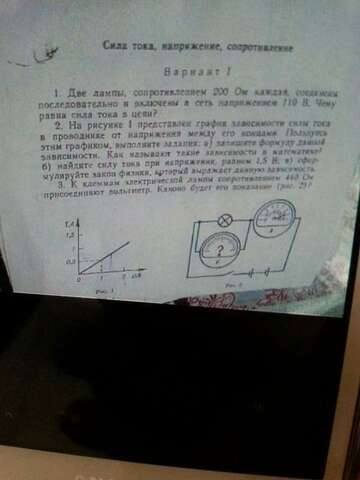 Сила тока, напряжение, сопротивление
Вариант I
1. Две лампы, сопротивлением 200 Ом каждая, соединены
последовательно и включены в сеть напряжением 110 В. Чему
равна сила тока в цепи?
2. На рисунке 1 представлен график зависимости силы тока
в проводнике от напряжения между его концами. Пользуясь
этим графиком, выполните задания: а) запишите формулу данной
зависимости. Как называют такие зависимости в математике?
б) найдите силу тока при напряжении, равном 1,5 В; в) сфор-
мулируйте закон физики, который выражает данную зависимость.
3. К клеммам электрической лампы сопротивлением 440 Ом
присоединяют вольтметр. Каково будет его показание (рис. 2)?
I, A
1
0 1 2
?
Рис. 1
Рис. 2